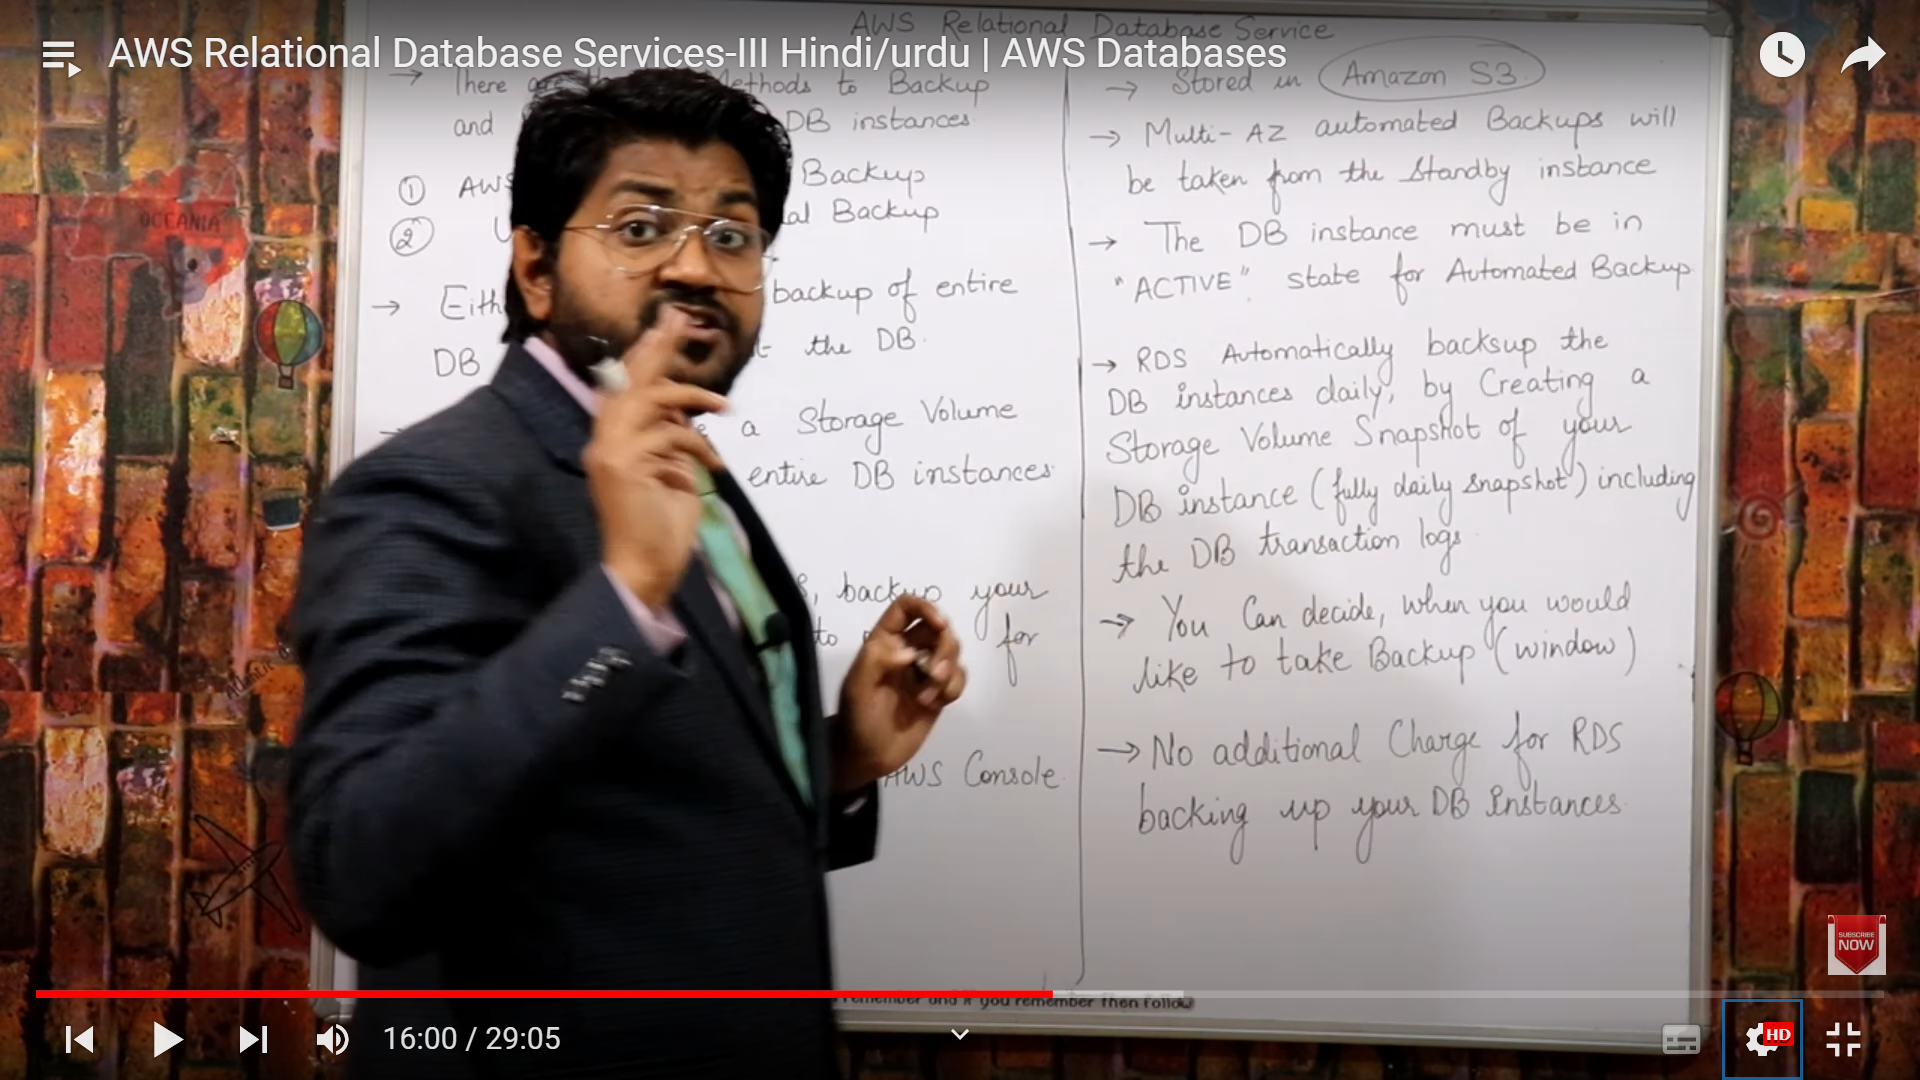 AWS Relational Database Service
AWS Relational Database Services-III Hindi/urdu | AWS Databases
There are Methods to Backup
and DB instances
① AWS Backup
② U al Backup
→ Eith backup of entire
DB the DB.
a Storage Volume
entire DB instances
s, backup your
to for
AWS Console
→ Stored in Amazon S3
→ Multi-AZ automated Backups will
be taken from the Standby instance
→ The DB instance must be in
"ACTIVE" state for Automated Backup
→ RDS Automatically backsup the
DB instances daily, by Creating a
Storage Volume Snapshot of your
DB instance (fully daily snapshot) including
the DB transaction logs
→ You Can decide, when you would
like to take Backup (window)
→ No additional Charge for RDS
backing up your DB Instances
OCEANIA
Atlantic
SUBSCRIBE
NOW
remember and if you remember then follow
16:00 / 29:05
HD